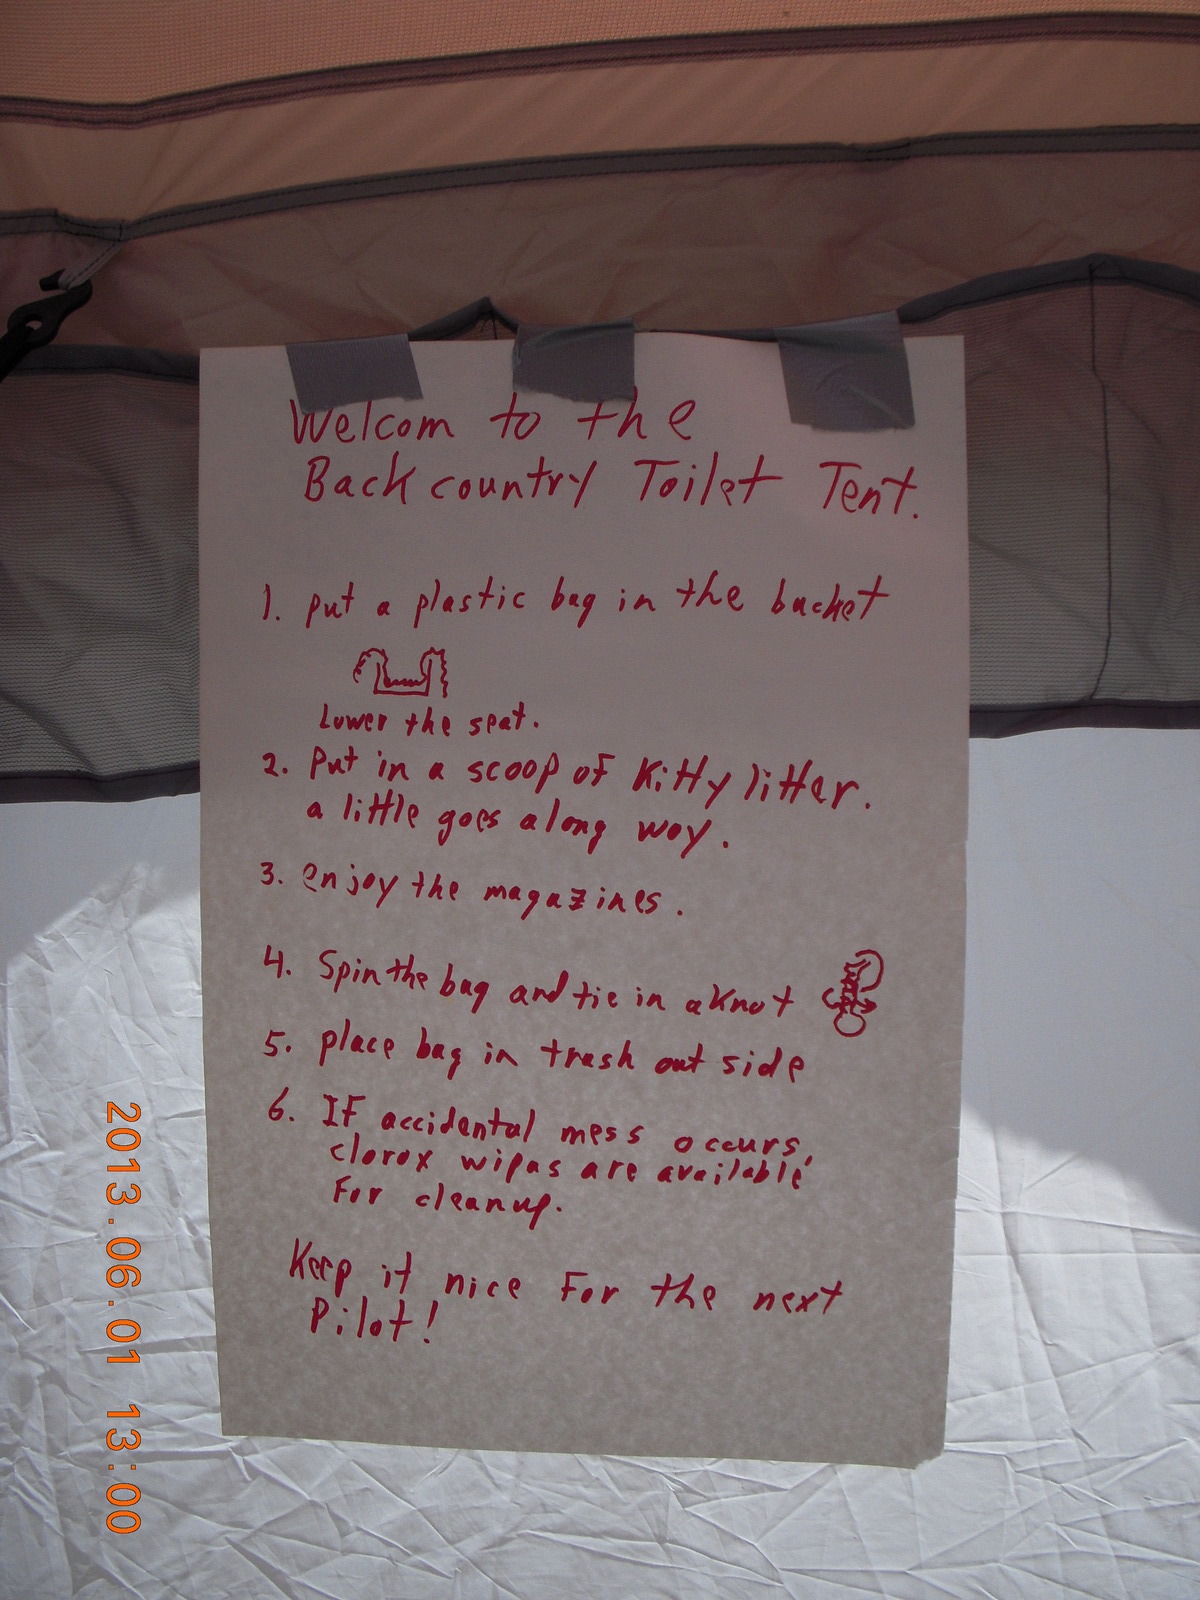 Welcom to the
Backcountry Toilet Tent.
1. put a plastic bag in the backet
Lower the seat.
2. Put in a scoop of Kitty litter.
a little goes along way.
3. enjoy the magazines.
4. Spin the bag and tie in a knot
5. place bag in trash out side
6. IF accidental mess occurs,
clorox wipas are available
For cleanup.
Keep it nice For the next
Pilot!
2013.06.01 13:00